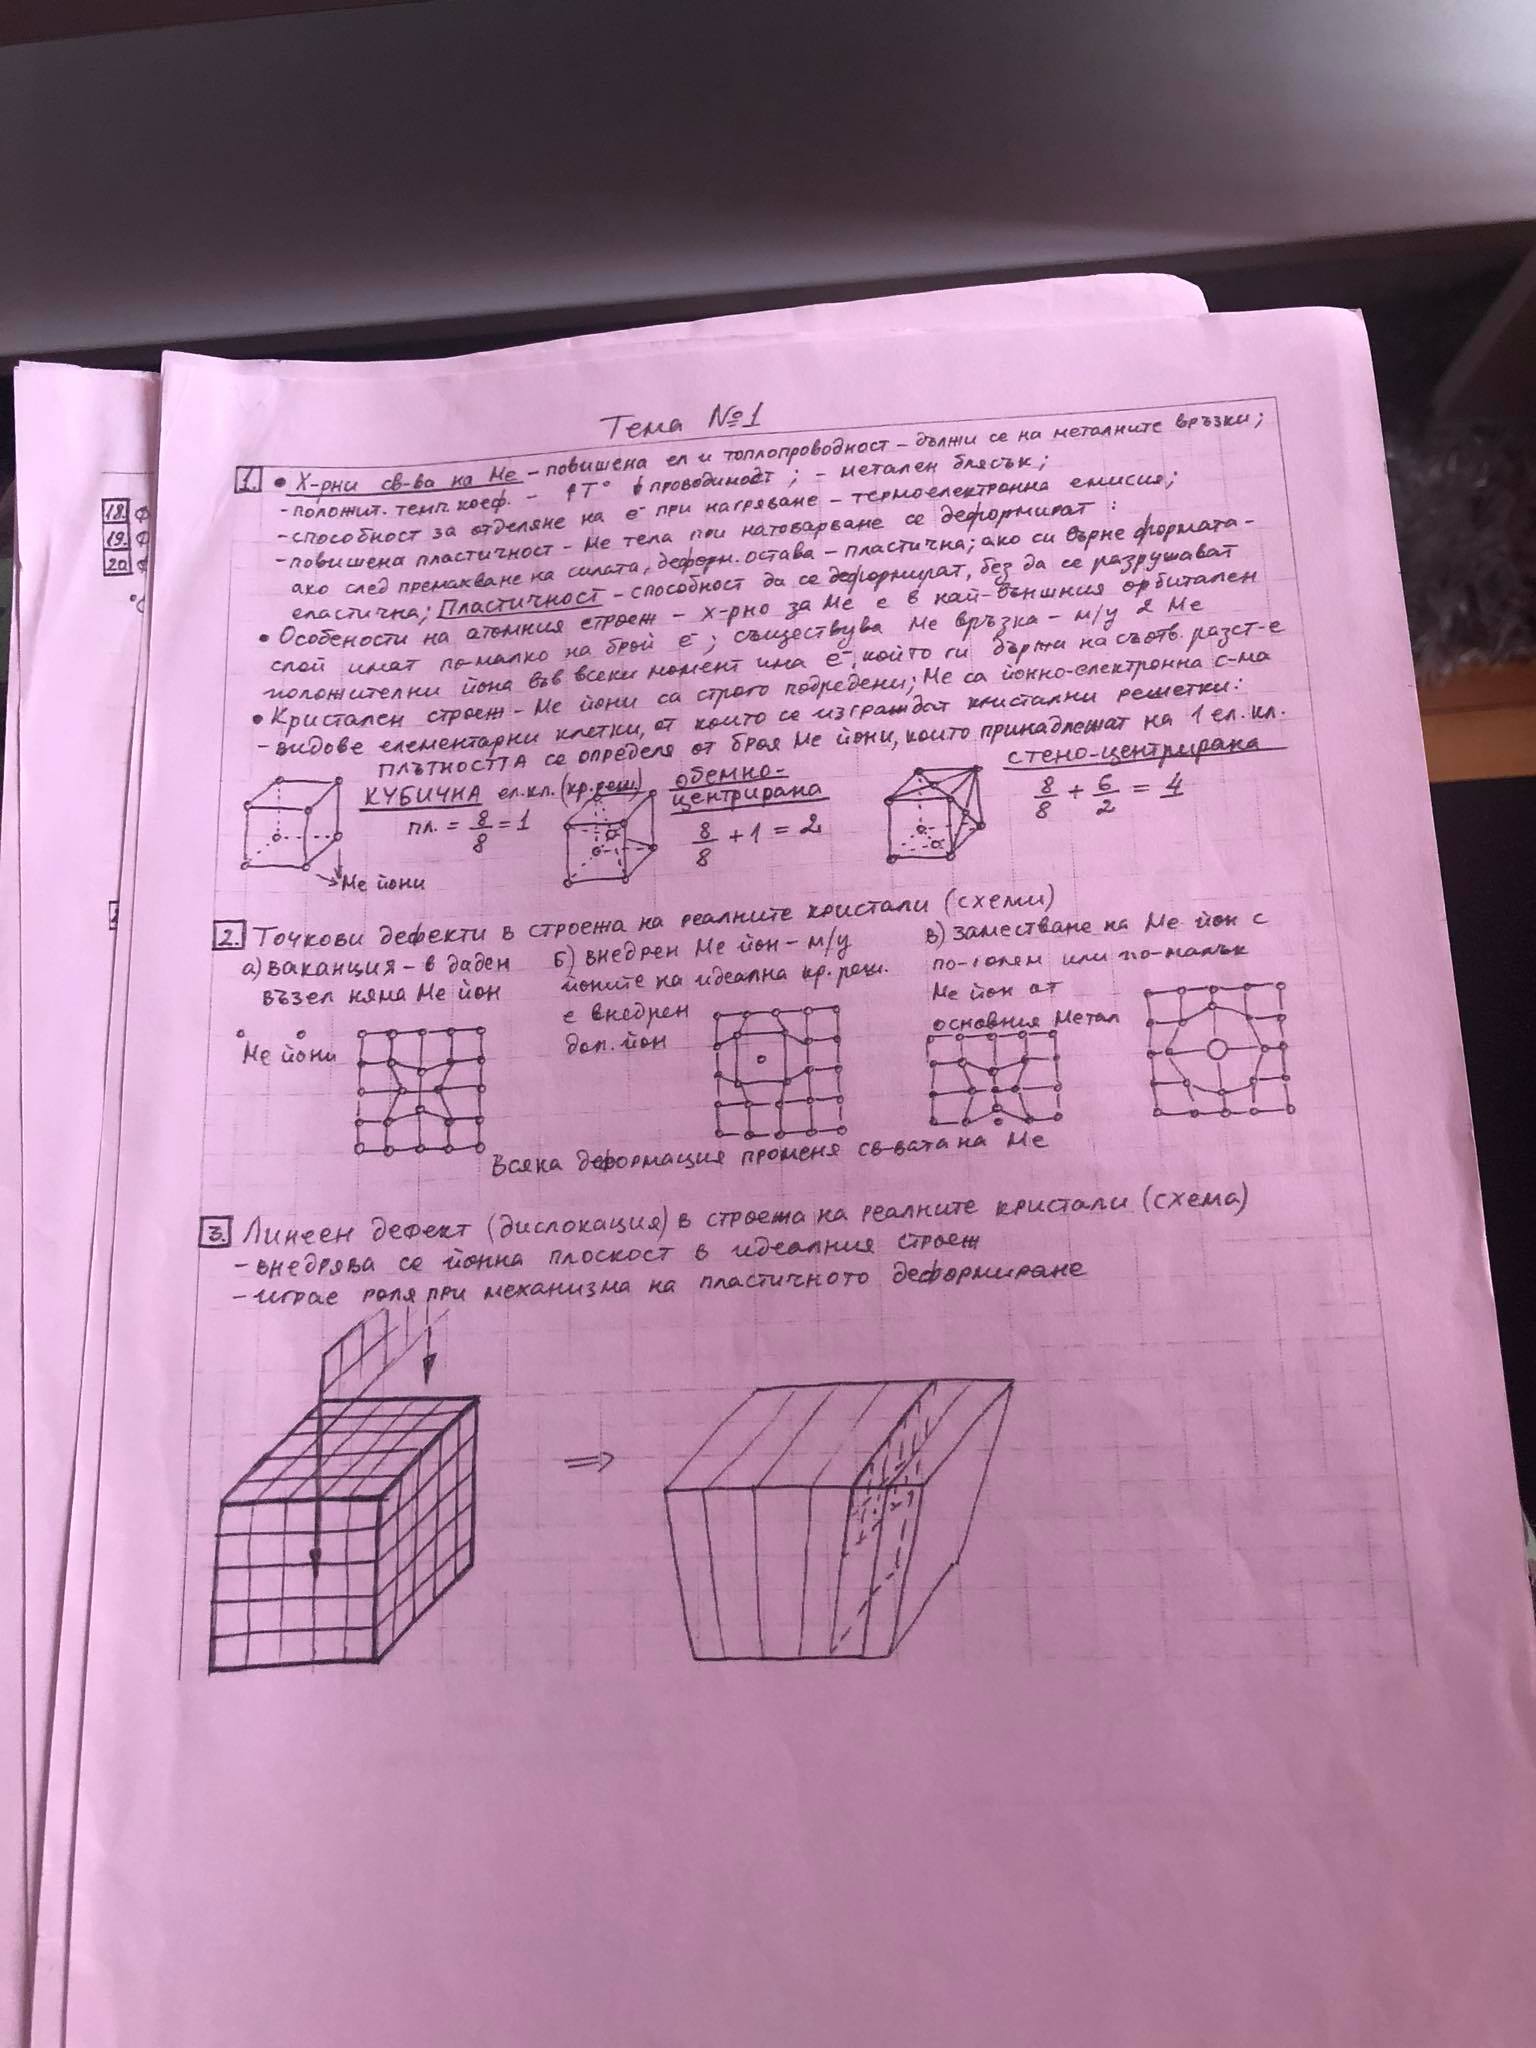 Тема №1
1. • Х-рни св-ва на Ме - повишена ел и топлопроводност - дължи се на металните връзки;
- положит. темп. коеф. - ↑T° ↓проводимост; - метален блясък;
- способност за отделяне на e⁻ при нагряване - термоелектронна емисия;
- повишена пластичност - Ме тела при натоварване се деформират:
ако след премахване на силата, деформ. остава - пластична; ако си върне формата -
еластична; Пластичност - способност да се деформират, без да се разрушават
• Особености на атомния строеж - х-рно за Ме е в най-външния орбитален
слой имат по-малко на брой e⁻; съществува Ме връзка - м/у 2 Ме
положителни йона във всеки момент има e⁻, който ги държи на съотв. разст-е
• Кристален строеж - Ме йони са строго подредени; Ме са йонно-електронна с-ма
- видове елементарни клетки, от които се изграждат кристални решетки:
ПЛЪТНОСТТА се определя от броя Ме йони, които принадлежат на 1 ел. кл.
КУБИЧНА ел.кл. (кр.реш.)
пл. = 8/8 = 1
Ме йони
обемно-
центрирана
8/8 + 1 = 2
стено-центрирана
8/8 + 6/2 = 4
2. Точкови дефекти в строежа на реалните кристали (схеми)
а) ваканция - в даден
възел няма Ме йон
Ме йони
Б) внедрен Ме йон - м/у
йоните на идеална кр. реш.
е внедрен
доп. йон
в) заместване на Ме йон с
по-голям или по-малък
Ме йон от
основния Метал
Всяка деформация променя св-вата на Ме
3. Линеен дефект (дислокация) в строежа на реалните кристали (схема)
- внедрява се йонна плоскост в идеалния строеж
- играе роля при механизма на пластичното деформиране
18. Ф
19. Ф
20. Ф